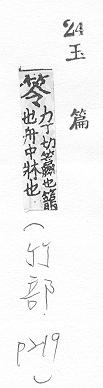 24
玉篇
笭
力丁切籯也籠
也舟中牀也
(竹部 p219)